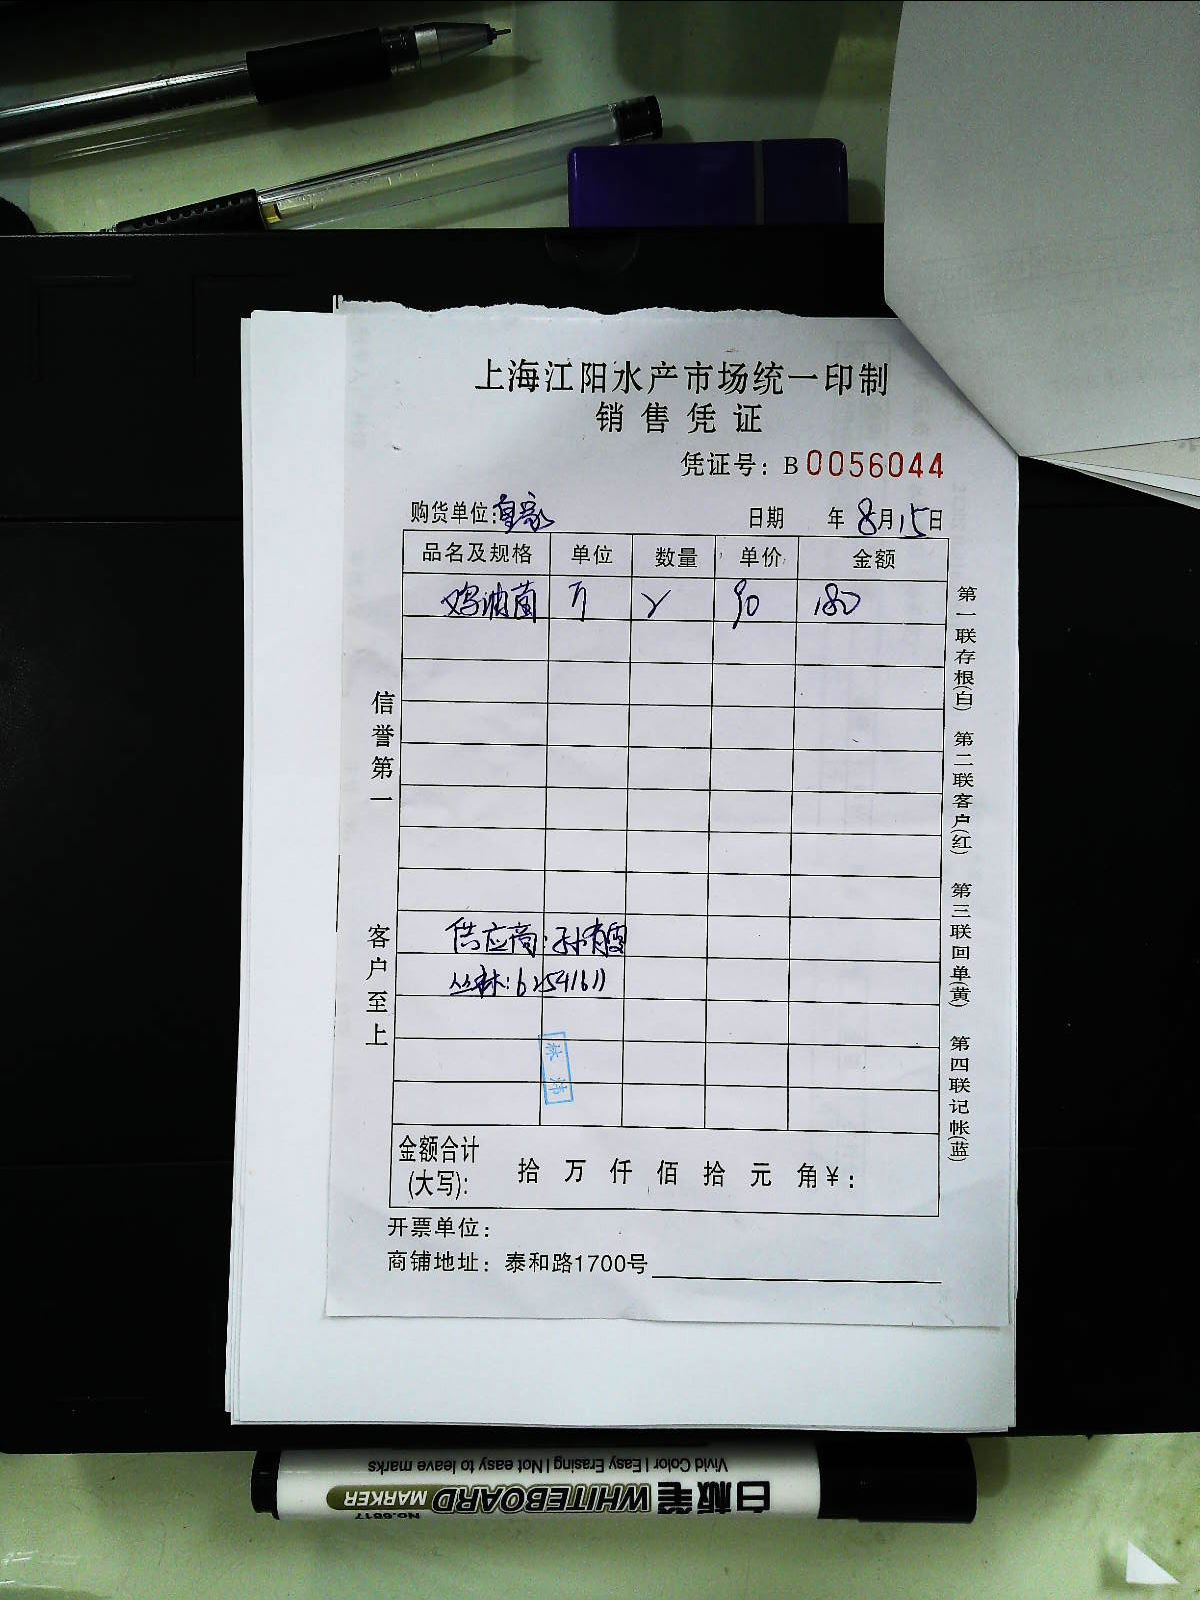 上海江阳水产市场统一印制
销售凭证
凭证号：B0056044
购货单位：皇家 日期 年8月15日
品名及规格 单位 数量 单价 金额
鸡油菌 斤 2 90 180
供应商：孙有霞
丛林：62541611
金额合计
(大写)： 拾 万 仟 佰 拾 元 角￥：
开票单位：
商铺地址：泰和路1700号
信誉第一 客户至上
第一联存根(白) 第二联客户(红) 第三联回单(黄) 第四联记帐(蓝)
Vivid Color | Easy Erasing | Not easy to leave marks
白板笔 WHITEBOARD MARKER
No.6817